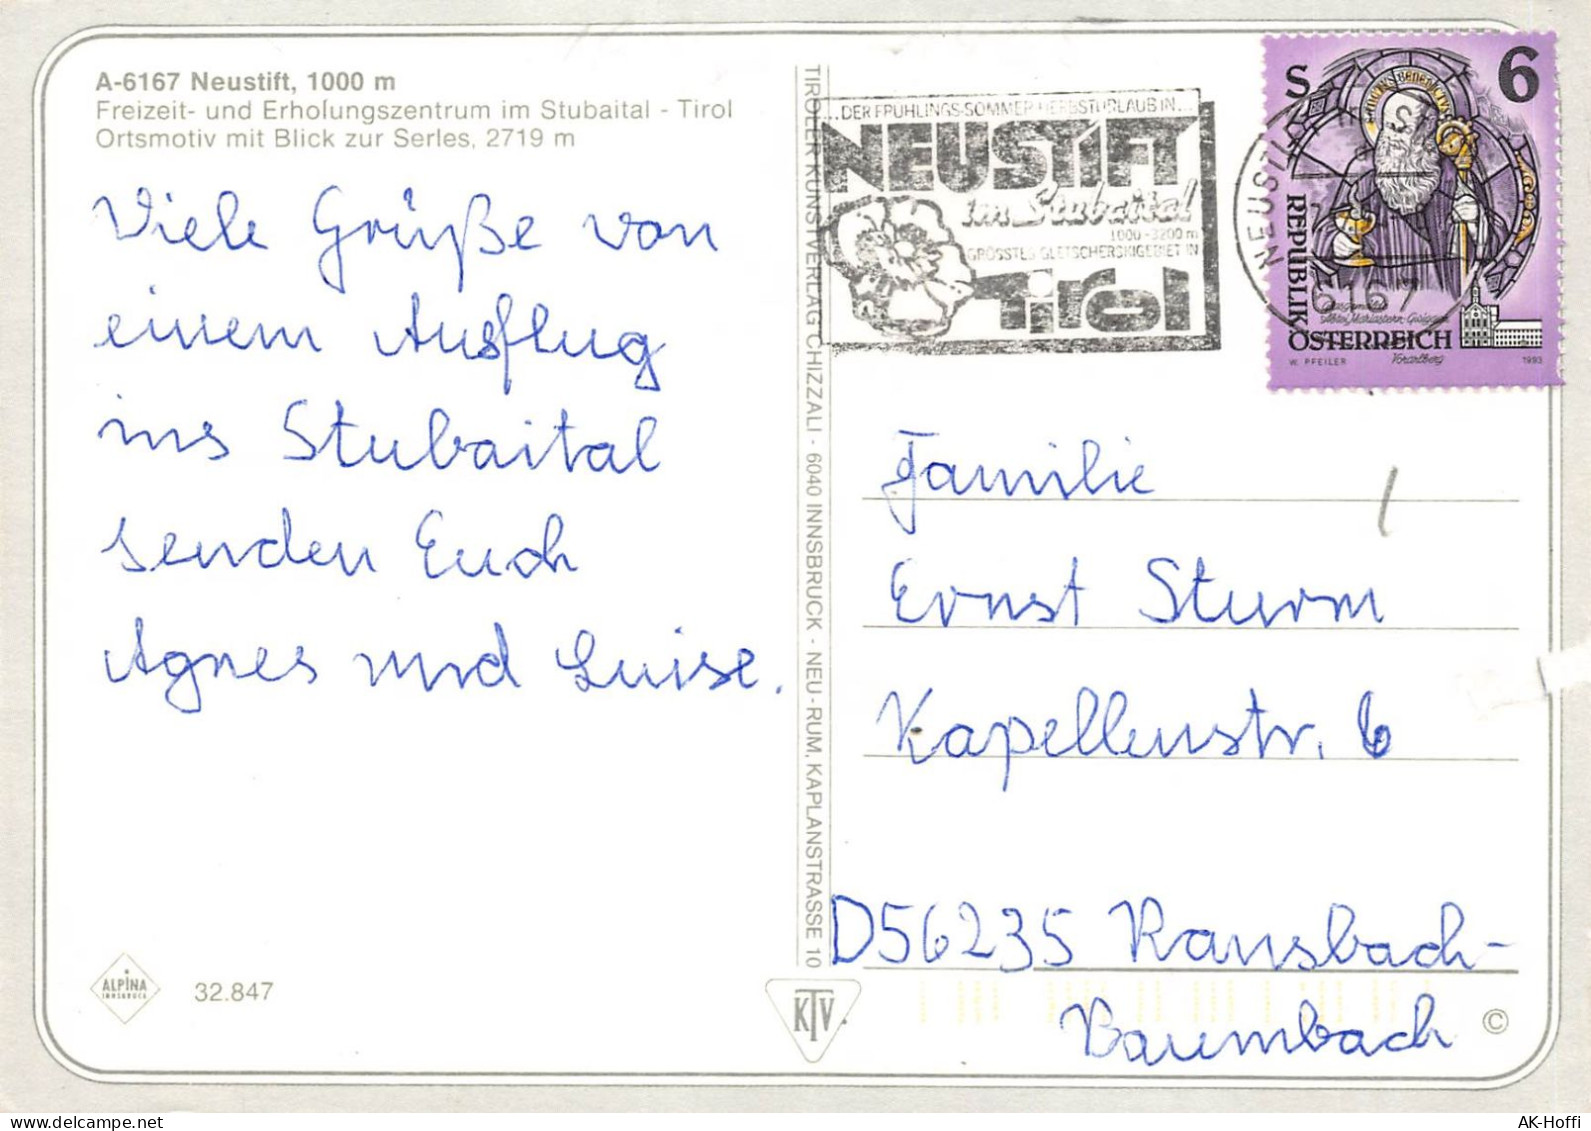 A-6167 Neustift, 1000 m
Freizeit- und Erholungszentrum im Stubaital - Tirol
Ortsmotiv mit Blick zur Serles, 2719 m
Viele Grüße von
einem Ausflug
ins Stubaital
senden Euch
Agnes und Luise.
ALPINA
INNSBRUCK
32.847
TIROLER KUNSTVERLAG CHIZZALI - 6040 INNSBRUCK - NEU-RUM, KAPLANSTRASSE 10
KTV
...DER FRÜHLINGS-SOMMER-HERBSTURLAUB IN...
NEUSTIFT
im Stubaital
1000-3200 m
GRÖSSTES GLETSCHERSKIGEBIET IN
Tirol
NEUSTIFT
6167
S 6
REPUBLIK ÖSTERREICH
Vorarlberg
W. PFEILER
1993
Familie
Ernst Sturm
Kapellenstr. 6
D56235 Ransbach-
Baumbach
©
AK-Hoffi